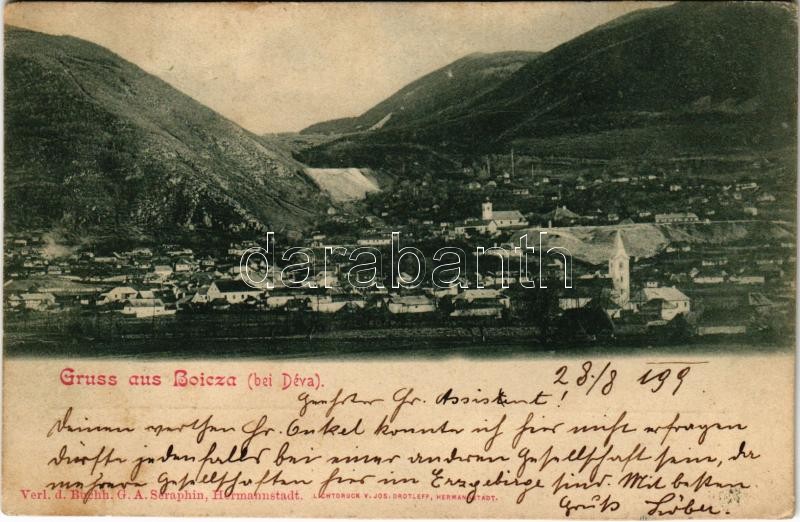 darabanth
Gruss aus Boicza (bei Déva).
28/8 199
Geehrter Hr. Assistent!
Deinen werthen Hr. Onkel konnte ich hier nicht erfragen
dürfte jedenfalls bei einer anderen Gesellschaft sein, da
mehrere Gesellschaften hier im Erzgebirge sind. Mit besten
Verl. d. Buchh. G. A. Seraphin, Hermannstadt. LICHTDRUCK V. JOS. DROTLEFF, HERMANNSTADT.
Gruß